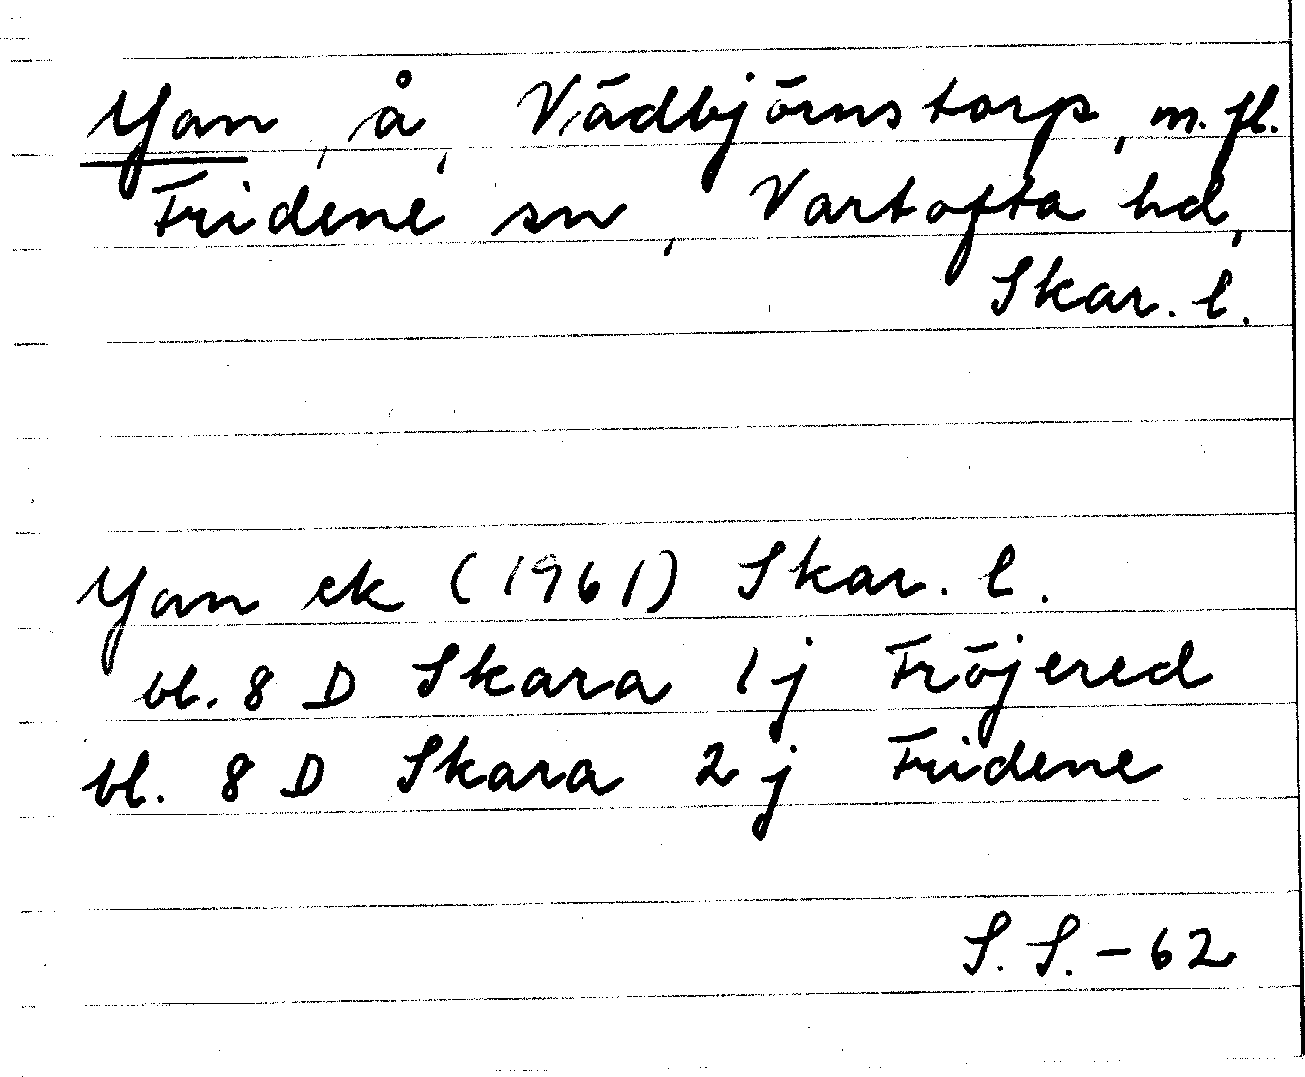 Yan, å, Vädbjörnstorp, m. fl.
Fridene sn, Vartofta hd,
Skar. l.
Yan ek (1961) Skar. l.
bl. 8 D Skara 1 j Fröjered
bl. 8 D Skara 2 j Fridene
S. S. - 62